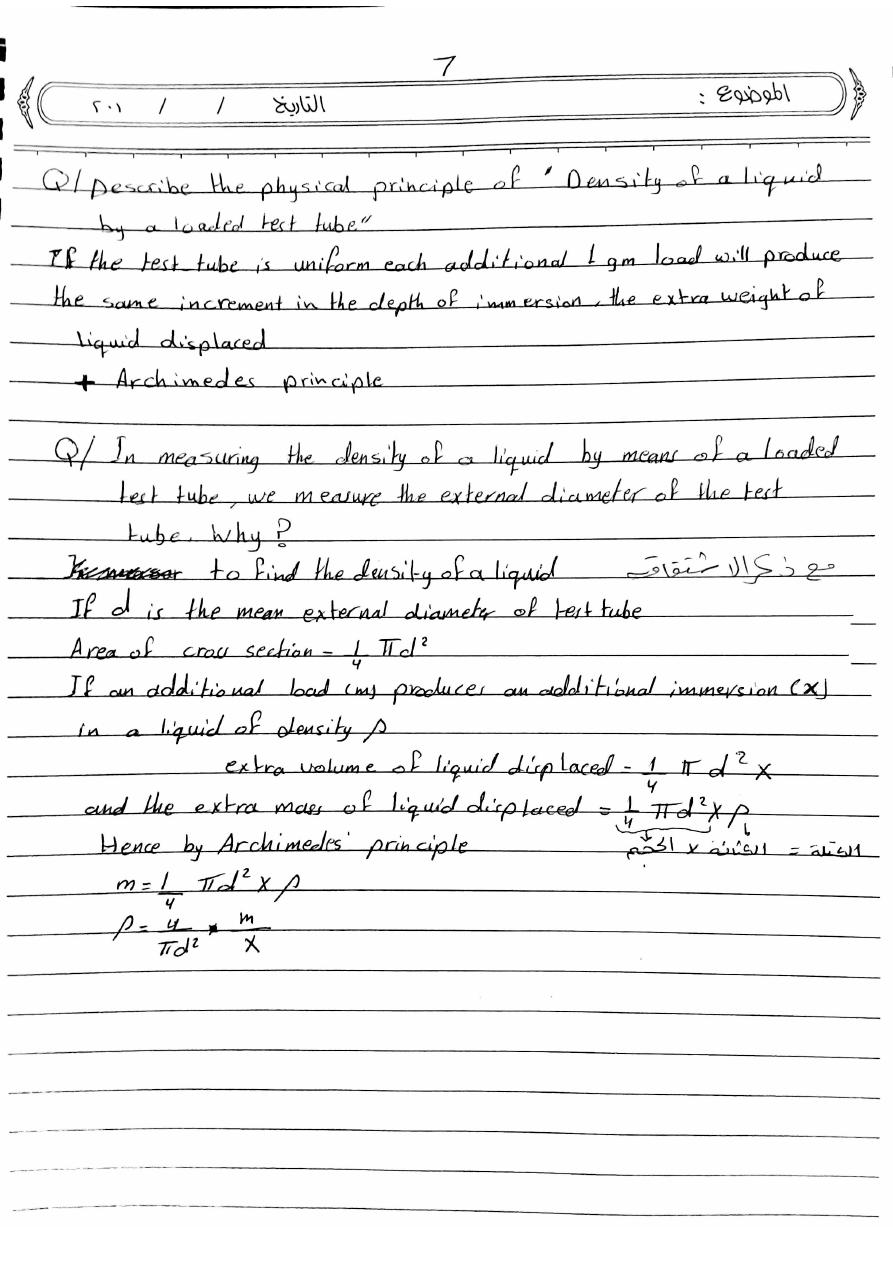 7
الموضوع :
التاريخ / / ٢٠١
Q/ Describe the physical principle of "Density of a liquid
by a loaded test tube"
If the test tube is uniform each additional 1 gm load will produce
the same increment in the depth of immersion, the extra weight of
liquid displaced
+ Archimedes principle
Q/ In measuring the density of a liquid by means of a loaded
test tube, we measure the external diameter of the test
tube. Why?
to find the density of a liquid مع ذكر الاشتقاق
If d is the mean external diameter of test tube
Area of cross section = 1/4 πd²
If an additional load (m) produces an additional immersion (x)
in a liquid of density ρ
extra volume of liquid displaced = 1/4 π d² x
and the extra mass of liquid displaced = 1/4 πd² x ρ
Hence by Archimedes' principle الكتلة = الكثافة x الحجم
m = 1/4 πd² x ρ
ρ = 4/πd² * m/x